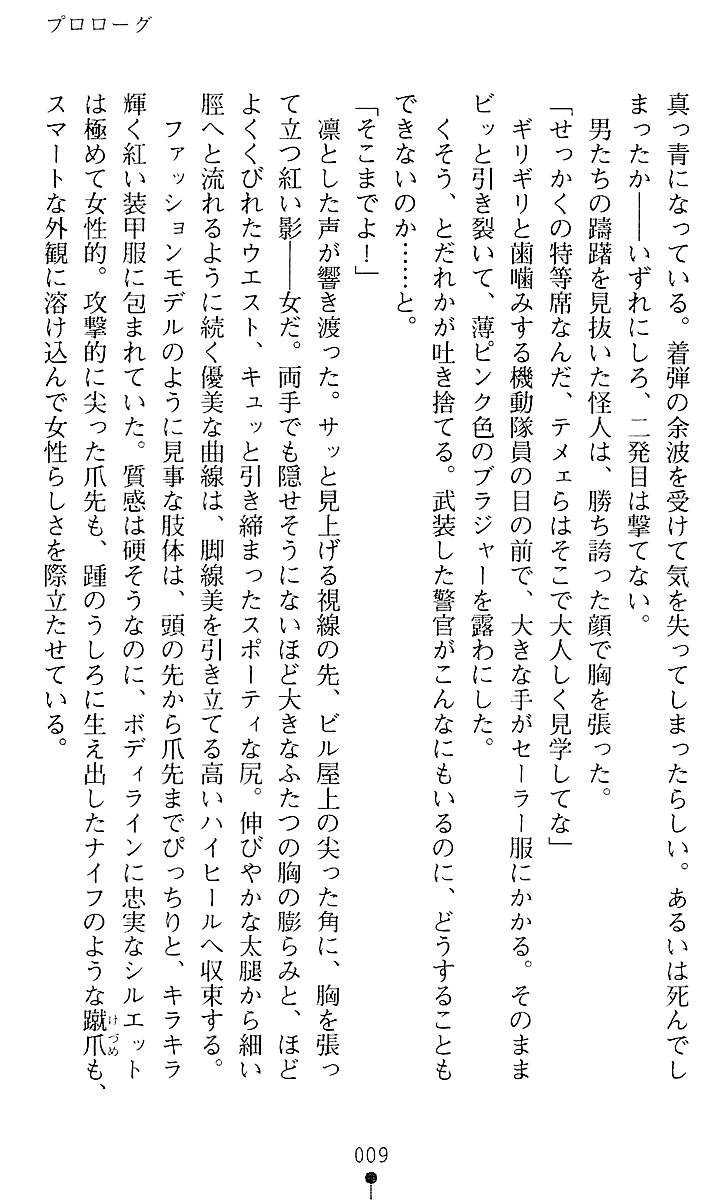 プロローグ
真っ青になっている。着弾の余波を受けて気を失ってしまったらしい。あるいは死んでし
まったか――いずれにしろ、二発目は撃てない。
男たちの躊躇を見抜いた怪人は、勝ち誇った顔で胸を張った。
「せっかくの特等席なんだ、テメェらはそこで大人しく見学してな」
ギリギリと歯噛みする機動隊員の目の前で、大きな手がセーラー服にかかる。そのまま
ビッと引き裂いて、薄ピンク色のブラジャーを露わにした。
くそう、とだれかが吐き捨てる。武装した警官がこんなにもいるのに、どうすることも
できないのか……と。
「そこまでよ！」
凛とした声が響き渡った。サッと見上げる視線の先、ビル屋上の尖った角に、胸を張っ
て立つ紅い影――女だ。両手でも隠せそうにないほど大きなふたつの胸の膨らみと、ほど
よくくびれたウエスト、キュッと引き締まったスポーティな尻。伸びやかな太腿から細い
脛へと流れるように続く優美な曲線は、脚線美を引き立てる高いハイヒールへ収束する。
ファッションモデルのように見事な肢体は、頭の先から爪先までぴっちりと、キラキラ
輝く紅い装甲服に包まれていた。質感は硬そうなのに、ボディラインに忠実なシルエット
は極めて女性的。攻撃的に尖った爪先も、踵のうしろに生え出したナイフのような蹴爪も、
けづめ
スマートな外観に溶け込んで女性らしさを際立たせている。
009